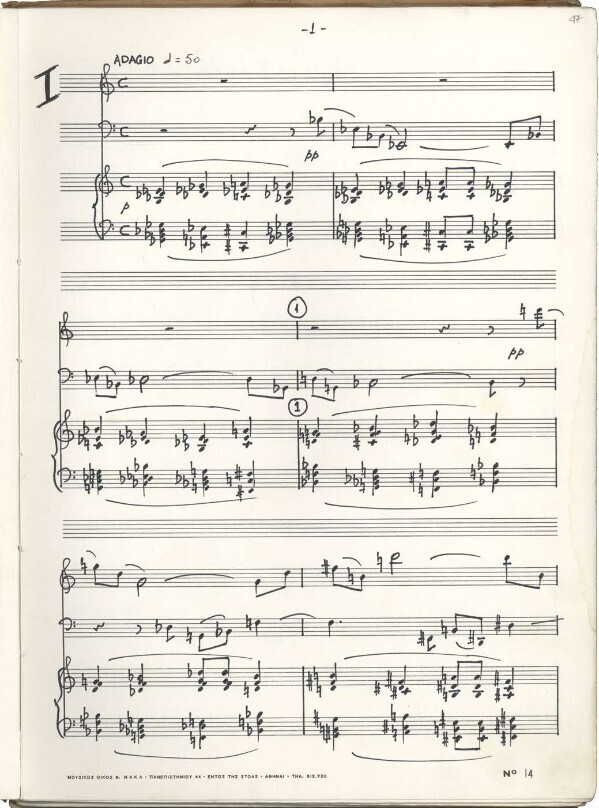 47
-1-
ADAGIO ♩ = 50
I
pp
p
1
pp
1
ΜΟΥΣΙΚΟΣ ΟΙΚΟΣ Φ. ΝΑΚΑ · ΠΑΝΕΠΙΣΤΗΜΙΟΥ 44 · ΕΝΤΟΣ ΤΗΣ ΣΤΟΑΣ · ΑΘΗΝΑΙ · ΤΗΛ.
Nº 14